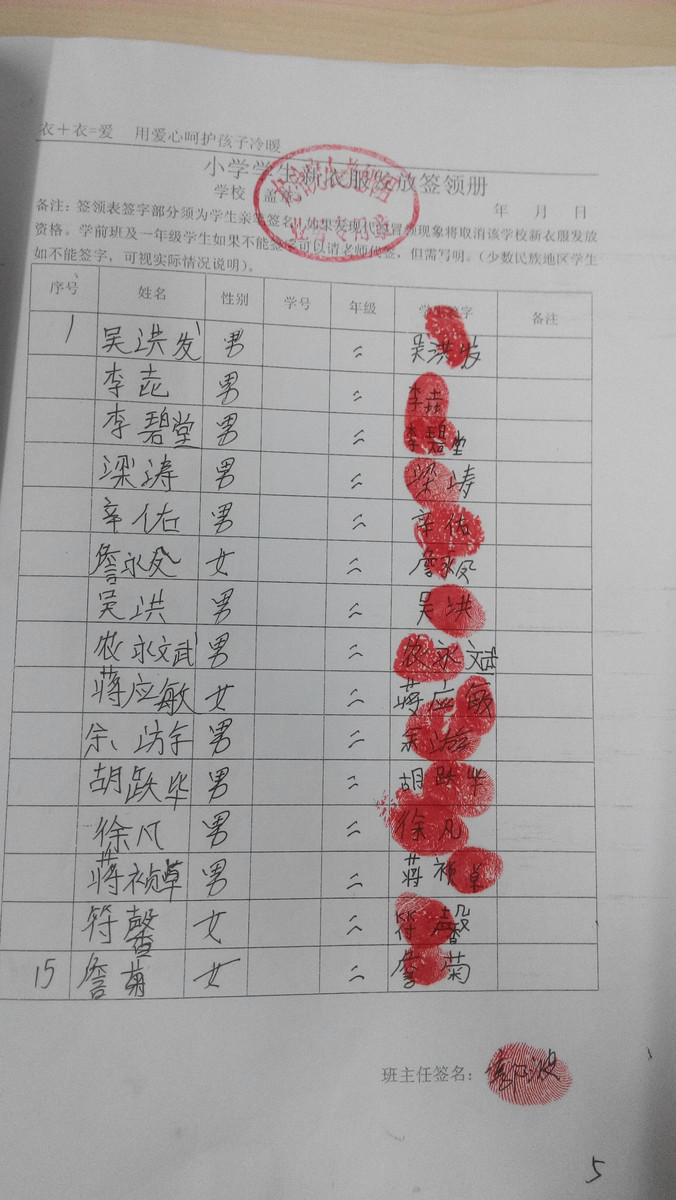 衣+衣=爱 用爱心呵护孩子冷暖
小学学生新衣服发放签领册
学校 盖章 年 月 日
备注：签领表签字部分须为学生亲笔签名，如果发现代签冒领现象将取消该学校新衣服发放
资格。学前班及一年级学生如果不能签字可以请老师代签，但需写明。（少数民族地区学生
如不能签字，可视实际情况说明）。
序号 姓名 性别 学号 年级 学生签字 备注
1 吴洪发 男 二 吴洪发
李垚 男 二 李垚
李碧堂 男 二 李碧堂
梁涛 男 二 梁涛
辛佑 男 二 辛佑
詹永 女 二 詹永
吴洪 男 二 吴洪
农永文武 男 二 农永文斌
蒋应敏 女 二 蒋应敏
余 男 二 余游
胡跌华 男 二 胡跌华
徐凡 男 二 徐凡
蒋祯草 男 二 蒋祯草
符馨 女 二 符馨
15 詹菊 女 二 詹菊
班主任签名：
5